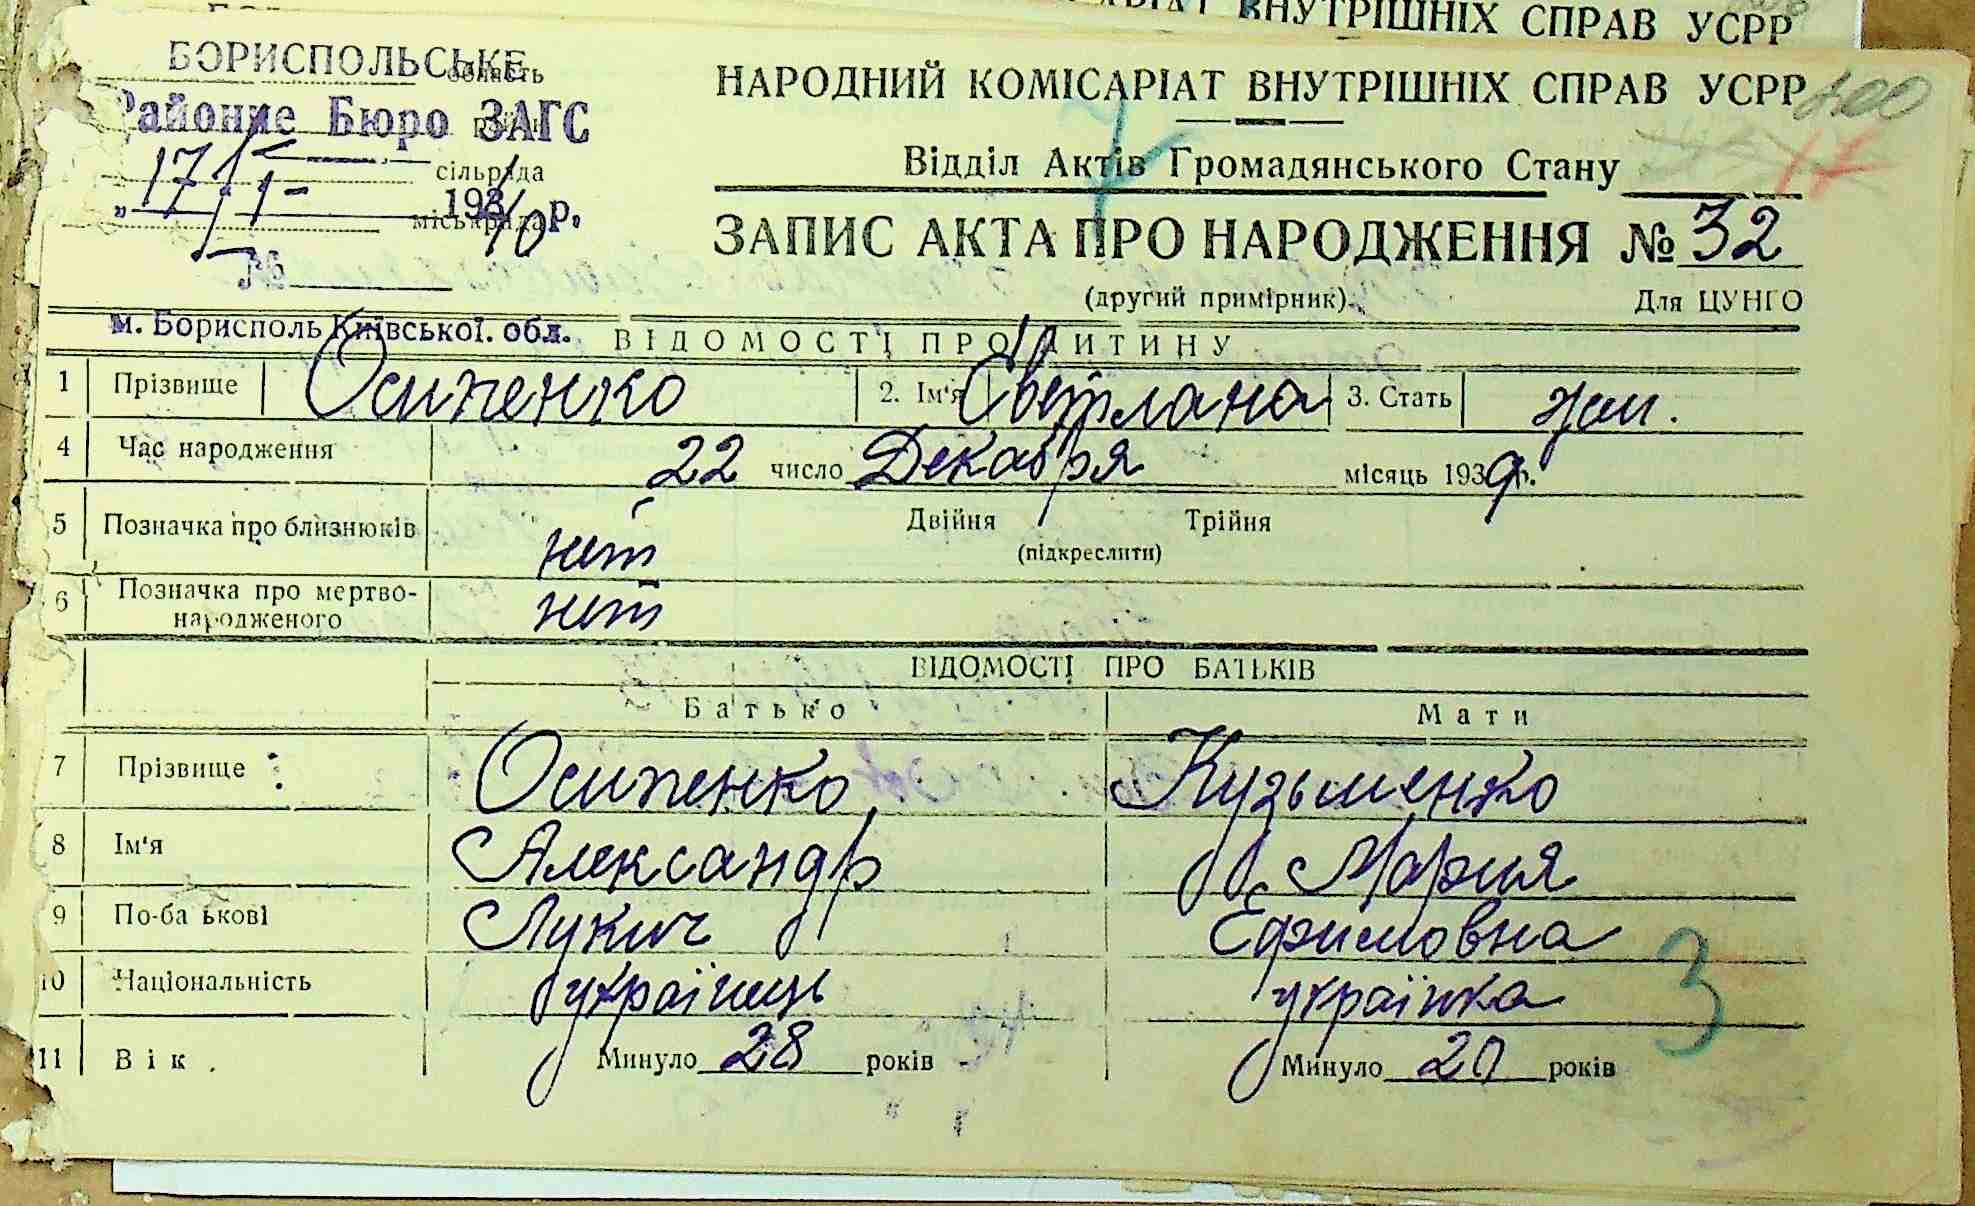 ВНУТРІШНІХ СПРАВ УСРР
БОРИСПОЛЬСЬКЕ
область
Районне Бюро ЗАГС
сільрада
„17/I- 193 40 р.
міськрада
№
м. Борисполь Київської. обл.
НАРОДНИЙ КОМІСАРІАТ ВНУТРІШНІХ СПРАВ УСРР
400
Відділ Актів Громадянського Стану
17
ЗАПИС АКТА ПРО НАРОДЖЕННЯ № 32
(другий примірник). Для ЦУНГО
ВІДОМОСТІ ПРО ДИТИНУ
1 Прізвище Осипенко 2. Ім'я Светлана 3. Стать жен.
4 Час народження 22 число Декабря місяць 1939 р.
5 Позначка про близнюків нет Двійня Трійня
(підкреслити)
6 Позначка про мертво-
народженого нет
ВІДОМОСТІ ПРО БАТЬКІВ
Батько Мати
7 Прізвище Осипенко Кузьменко
8 Ім'я Александр Мария
9 По-ба ькові Лукич Ефимовна
10 Національність українць українка
3
11 Вік. Минуло 28 років Минуло 20 років